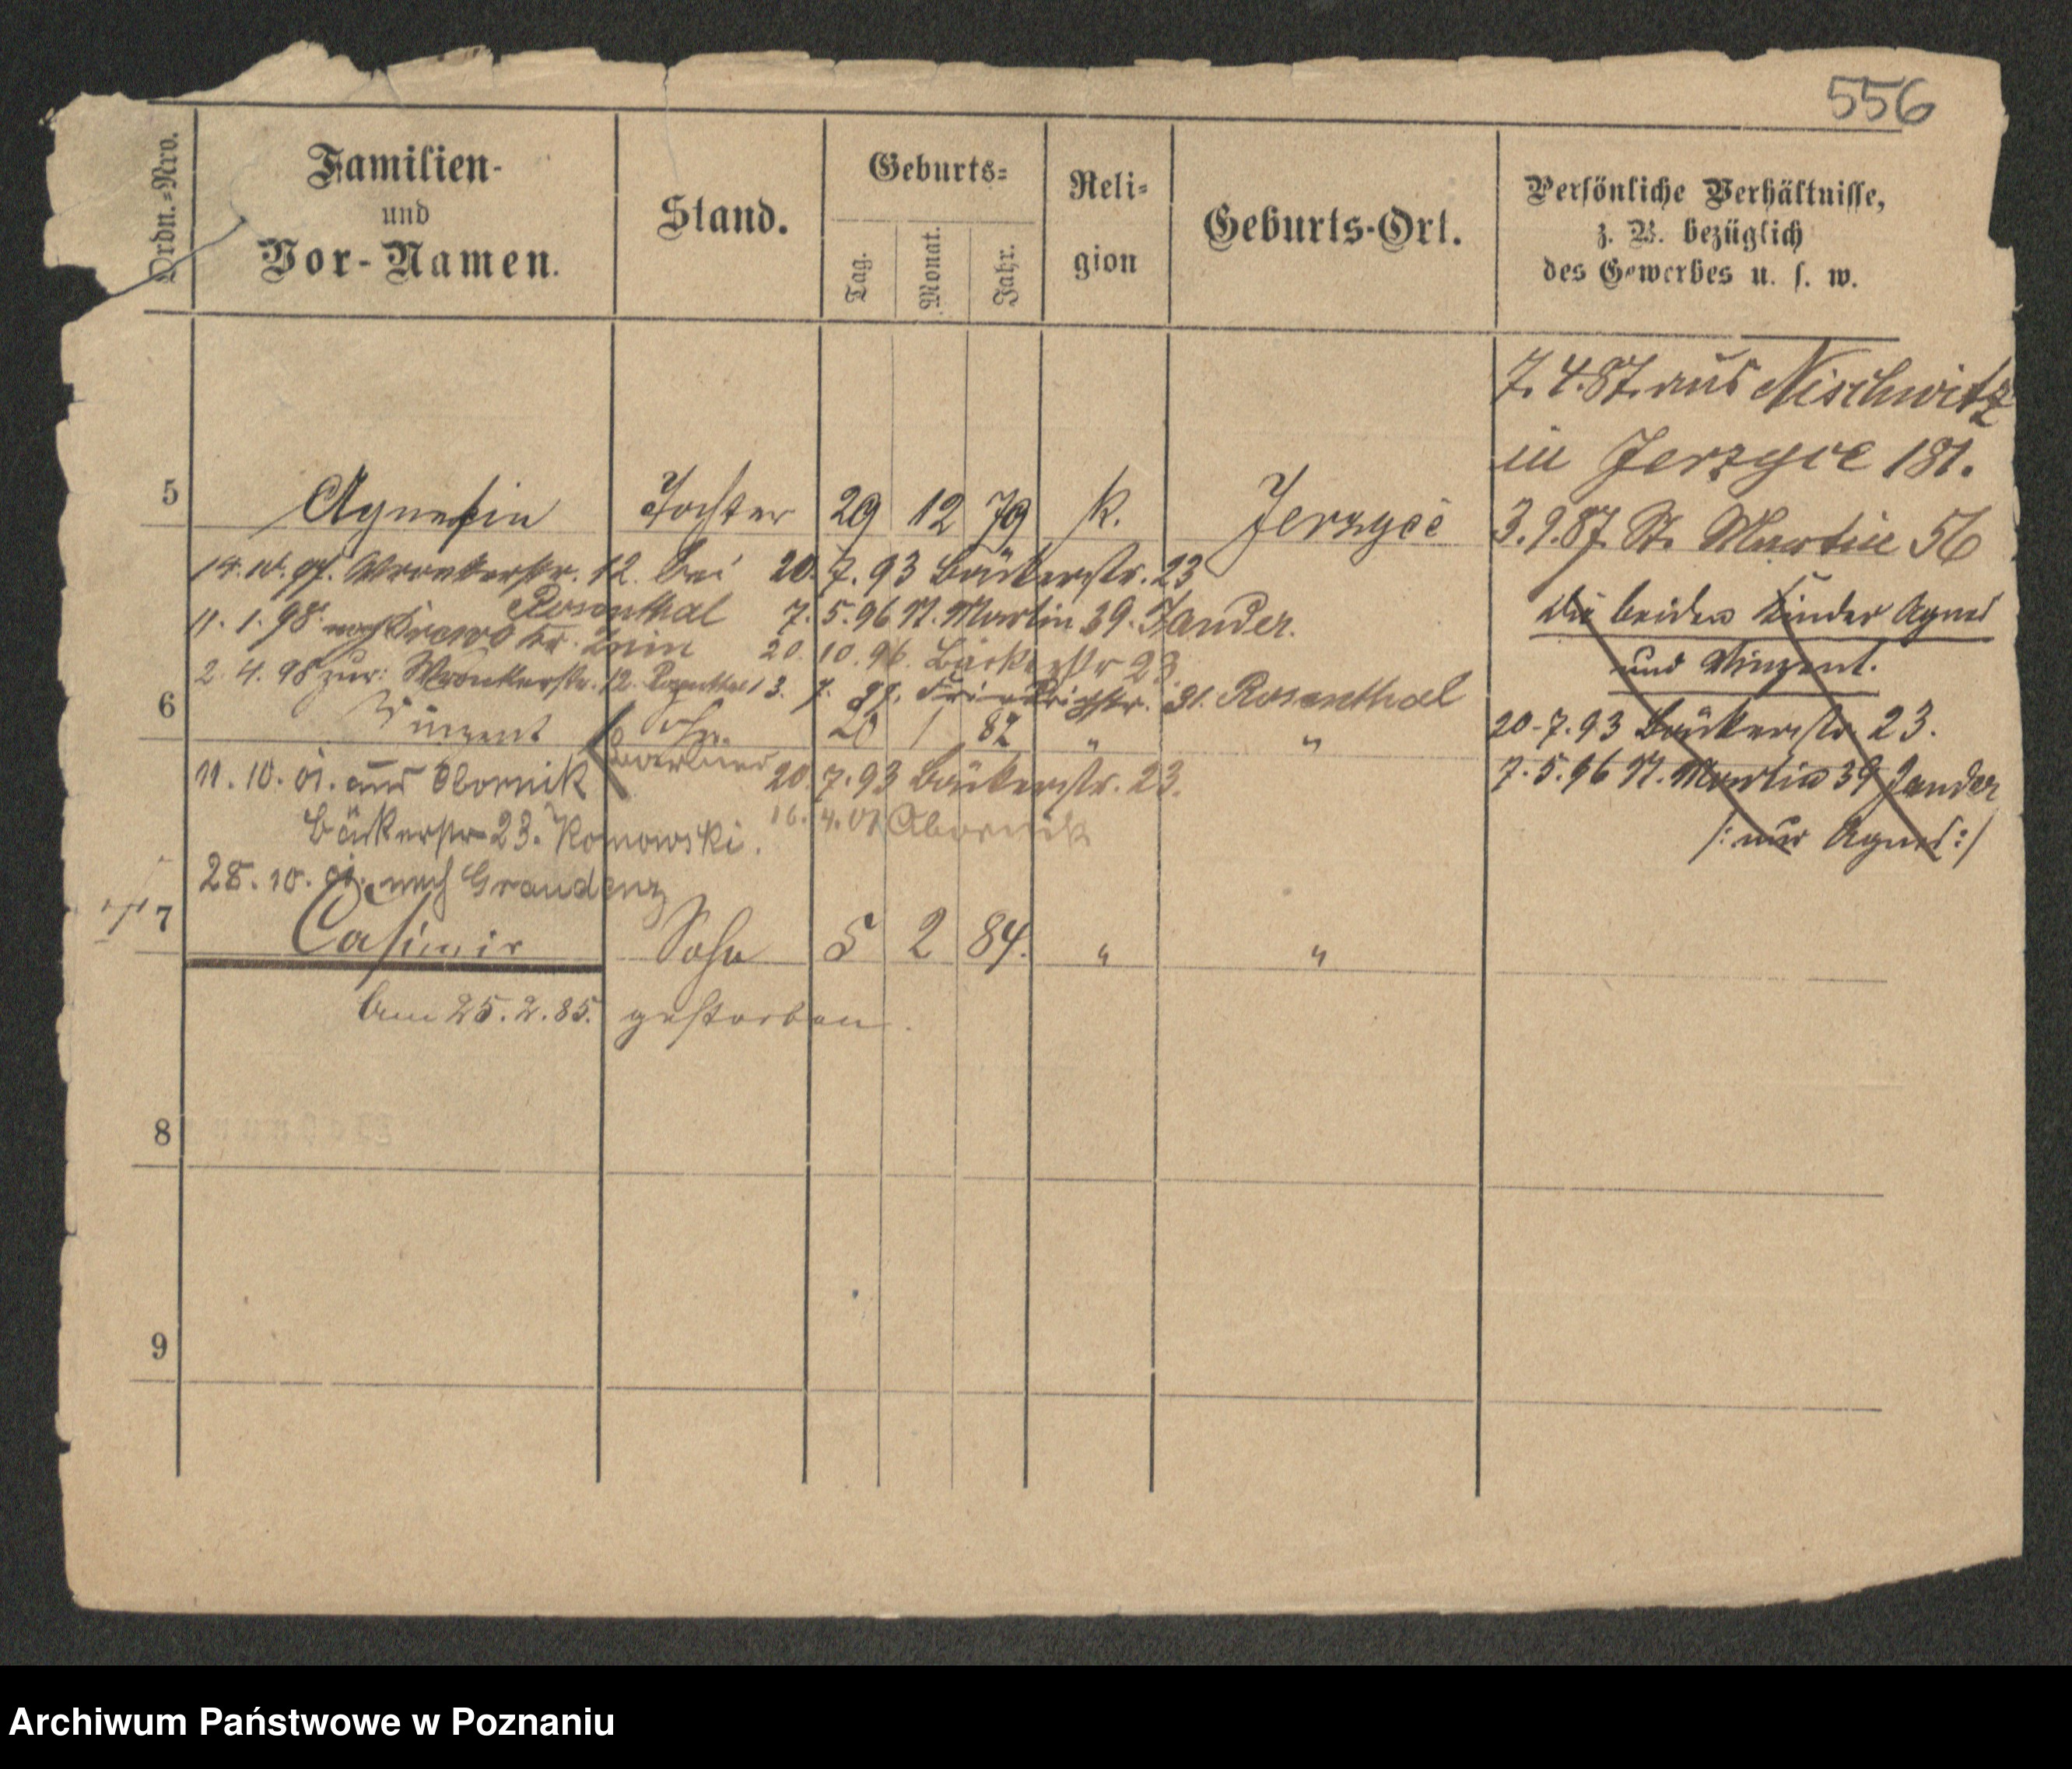 556
Ordn.-Nro.
Familien-
und
Vor-Namen.
Stand.
Geburts-
Tag.
Monat.
Jahr.
Reli-
gion
Geburts-Ort.
Persönliche Verhältnisse,
z. B. bezüglich
des Gewerbes u. s. w.
7.4.87. aus Nischwitz
in Jerzyce 181.
5 Agnesia Tochter 29 12 79 k. Jerzyce
3.9.87. St. Martin 56
Wronkerstr. 12. bei
Rosenthal
20.7.93 Bäckerstr. 23
11. 1. 98. nach Kr. Znin
7.5.96 St. Martin 39. Jander.
20.10.96. Bäckerstr 23.
2. 4. 98 zur: Wronkerstr. 12. Rosenthal
13. 7. Friedrichstr. 31. Rosenthal
Die beiden Kinder Agnes
und Vinzent.
6 Vinzent Sohn. 20 1 82 " "
20.7.93 Bäckerstr. 23.
7.5.96 St. Martin 39 Jander
/: nur Agnes :/
11. 10. 01. aus Obornik
20.7.93 Bäckerstr. 23.
Bäckerstr 23. Komowski.
16. 4. 01 Obornik
28. 10. 01. nach Graudenz
7 Casimir Sohn 5 2 84. " "
am 25. 2. 85. gestorben.
8
9
Archiwum Państwowe w Poznaniu